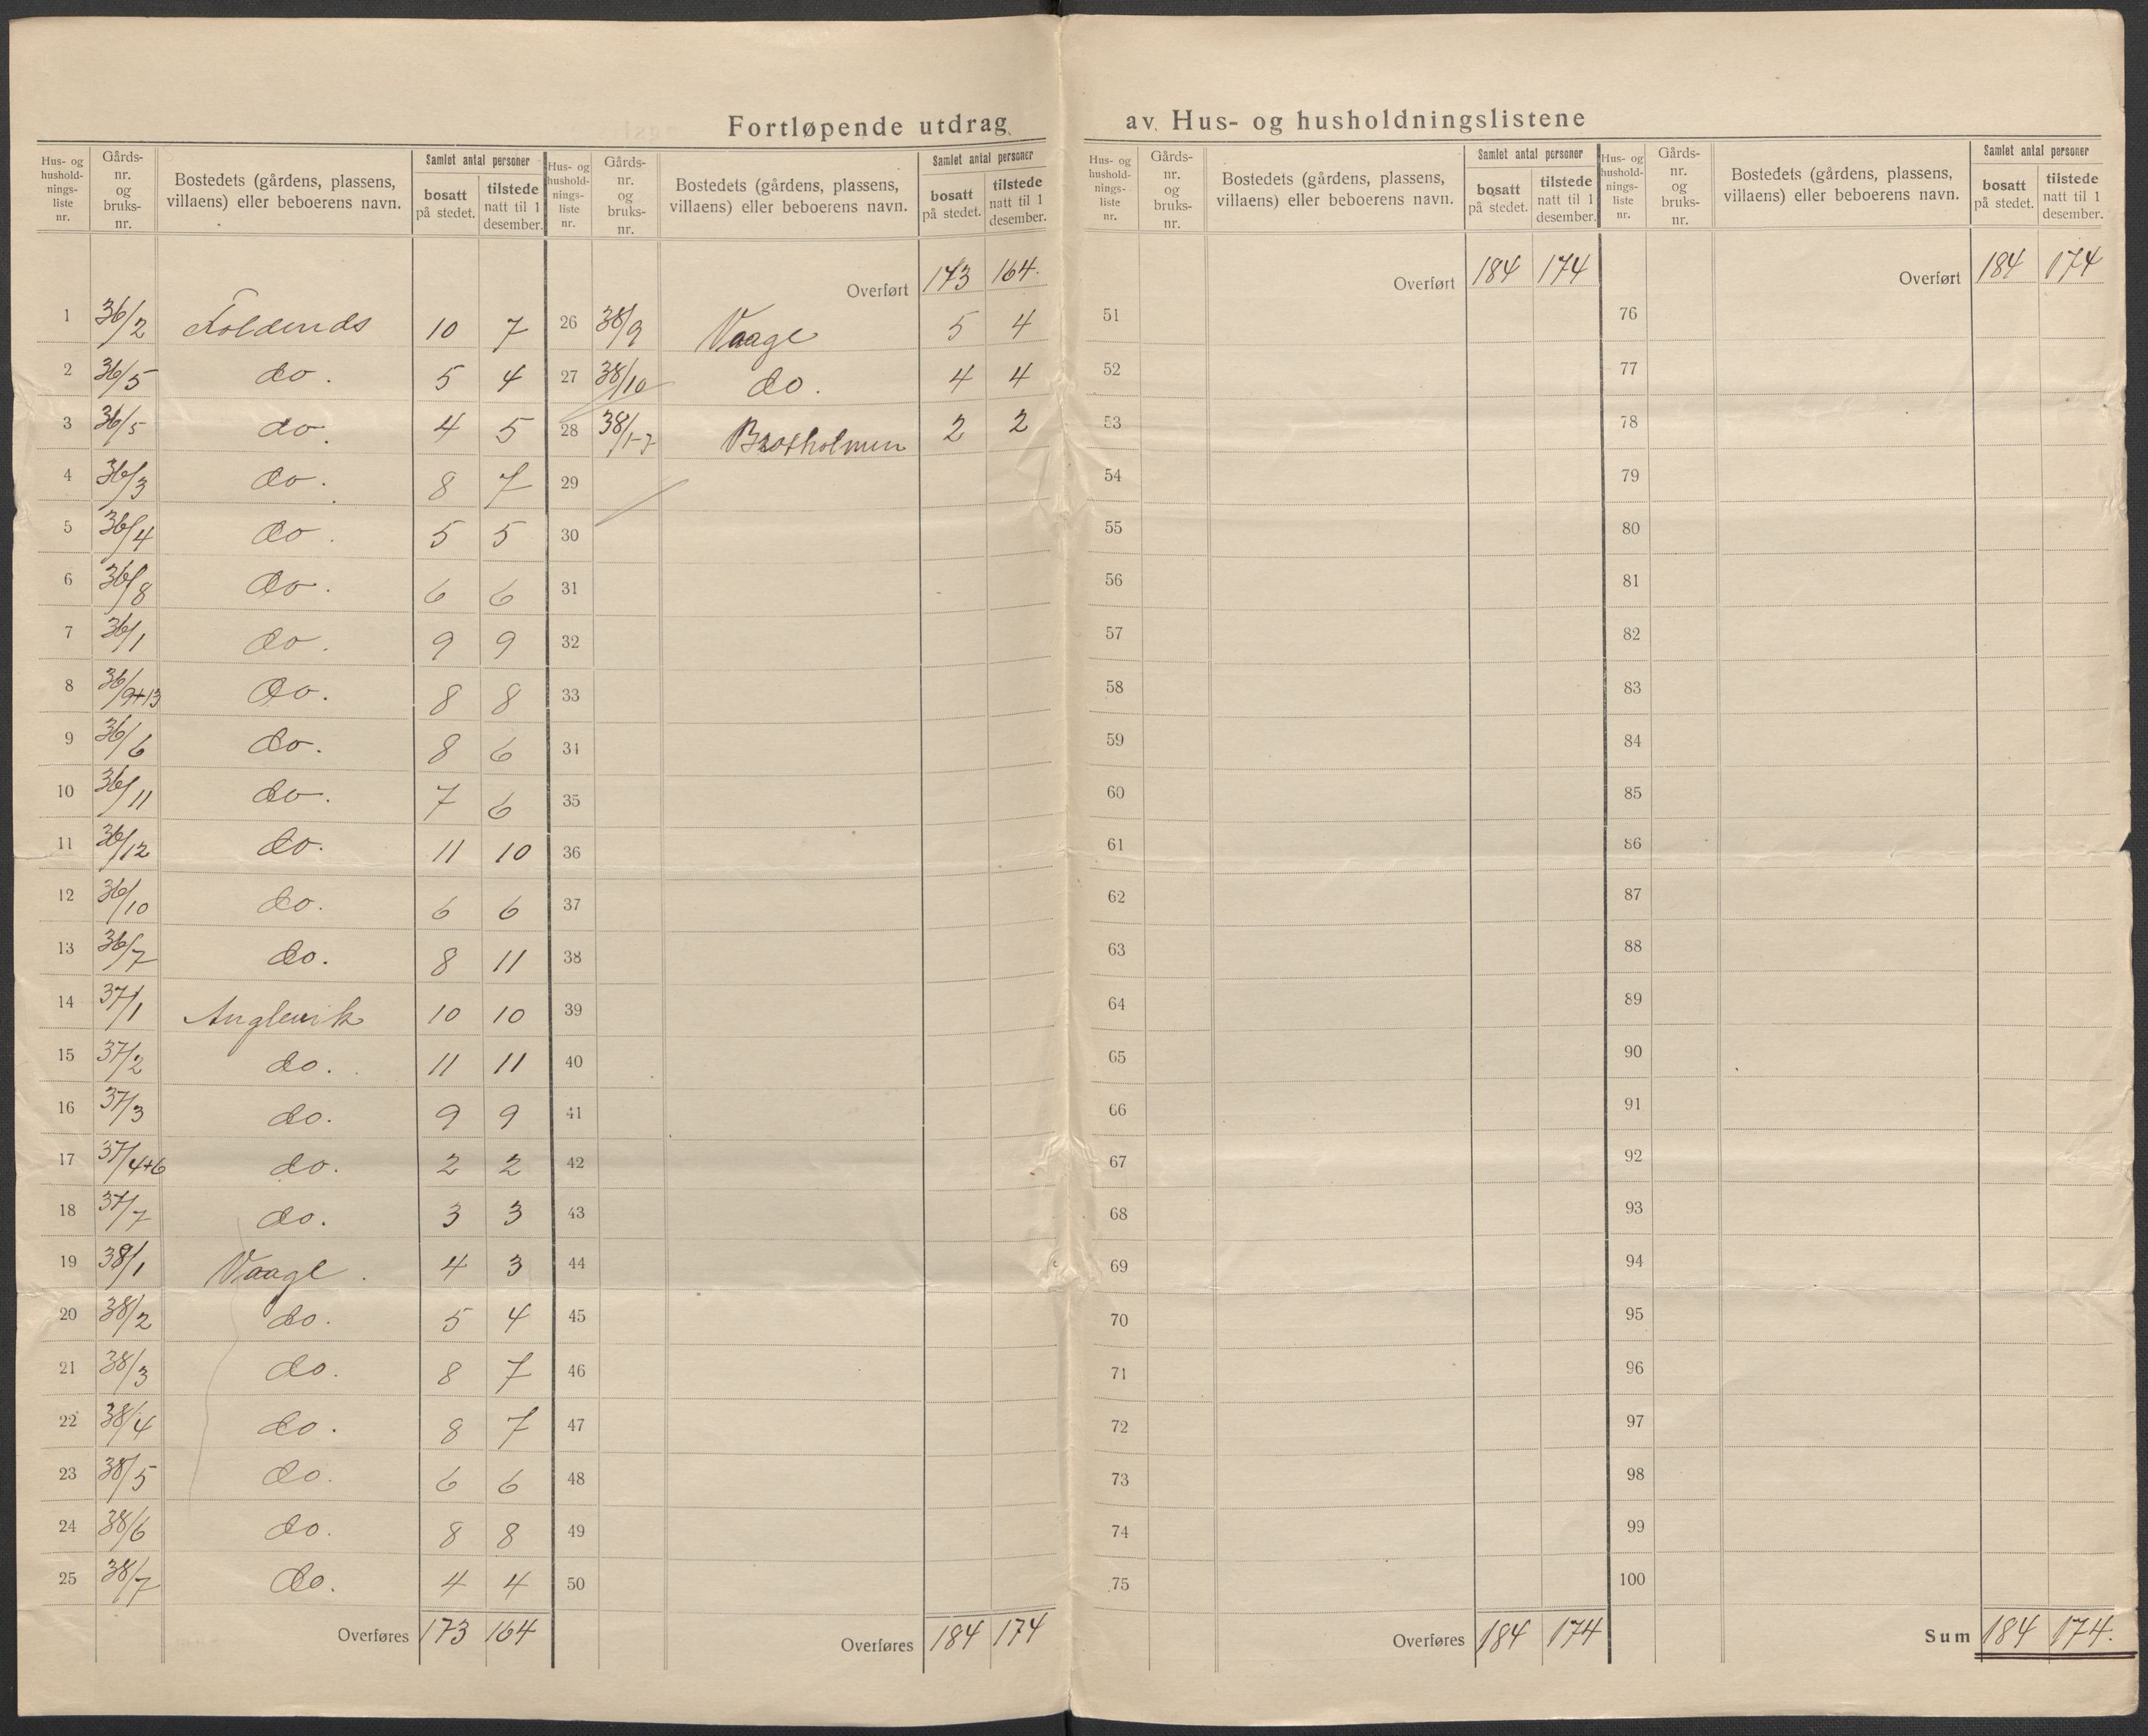 Fortløpende utdrag av Hus- og husholdningslistene
Hus- og hushold-nings-liste nr. | Gårds-nr. og bruks-nr. | Bostedets (gårdens, plassens, villaens) eller beboerens navn. | Samlet antal personer | bosatt på stedet. | tilstede natt til 1 desember.
1 36/2 Foldenes 10 7
2 36/5 do. 5 4
3 36/5 do. 4 5
4 36/3 do. 8 7
5 36/4 do. 5 5
6 36/8 do. 6 6
7 36/1 do. 9 9
8 36/9+13 do. 8 8
9 36/6 do. 8 6
10 36/11 do. 7 6
11 36/12 do. 11 10
12 36/10 do. 6 6
13 36/7 do. 8 11
14 37/1 Anglevik 10 10
15 37/2 do. 11 11
16 37/3 do. 9 9
17 37/4+6 do. 2 2
18 37/7 do. 3 3
19 38/1 Vaage. 4 3
20 38/2 do. 5 4
21 38/3 do. 8 7
22 38/4 do. 8 7
23 38/5 do. 6 6
24 38/6 do. 8 8
25 38/7 do. 4 4
Overføres 173 164
Hus- og hushold-nings-liste nr. | Gårds-nr. og bruks-nr. | Bostedets (gårdens, plassens, villaens) eller beboerens navn. | Samlet antal personer | bosatt på stedet. | tilstede natt til 1 desember.
Overført 173 164.
26 38/9 Vaage 5 4
27 38/10 do. 4 4
28 38/1-7 2 2
29
30
31
32
33
34
35
36
37
38
39
40
41
42
43
44
45
46
47
48
49
50
Overføres 184 174
Hus- og hushold-nings-liste nr. | Gårds-nr. og bruks-nr. | Bostedets (gårdens, plassens, villaens) eller beboerens navn. | Samlet antal personer | bosatt på stedet. | tilstede natt til 1 desember.
Overført 184 174
51
52
53
54
55
56
57
58
59
60
61
62
63
64
65
66
67
68
69
70
71
72
73
74
75
Overføres 184 174
Hus- og hushold-nings-liste nr. | Gårds-nr. og bruks-nr. | Bostedets (gårdens, plassens, villaens) eller beboerens navn. | Samlet antal personer | bosatt på stedet. | tilstede natt til 1 desember.
Overført 184 174
76
77
78
79
80
81
82
83
84
85
86
87
88
89
90
91
92
93
94
95
96
97
98
99
100
Sum 184 174.